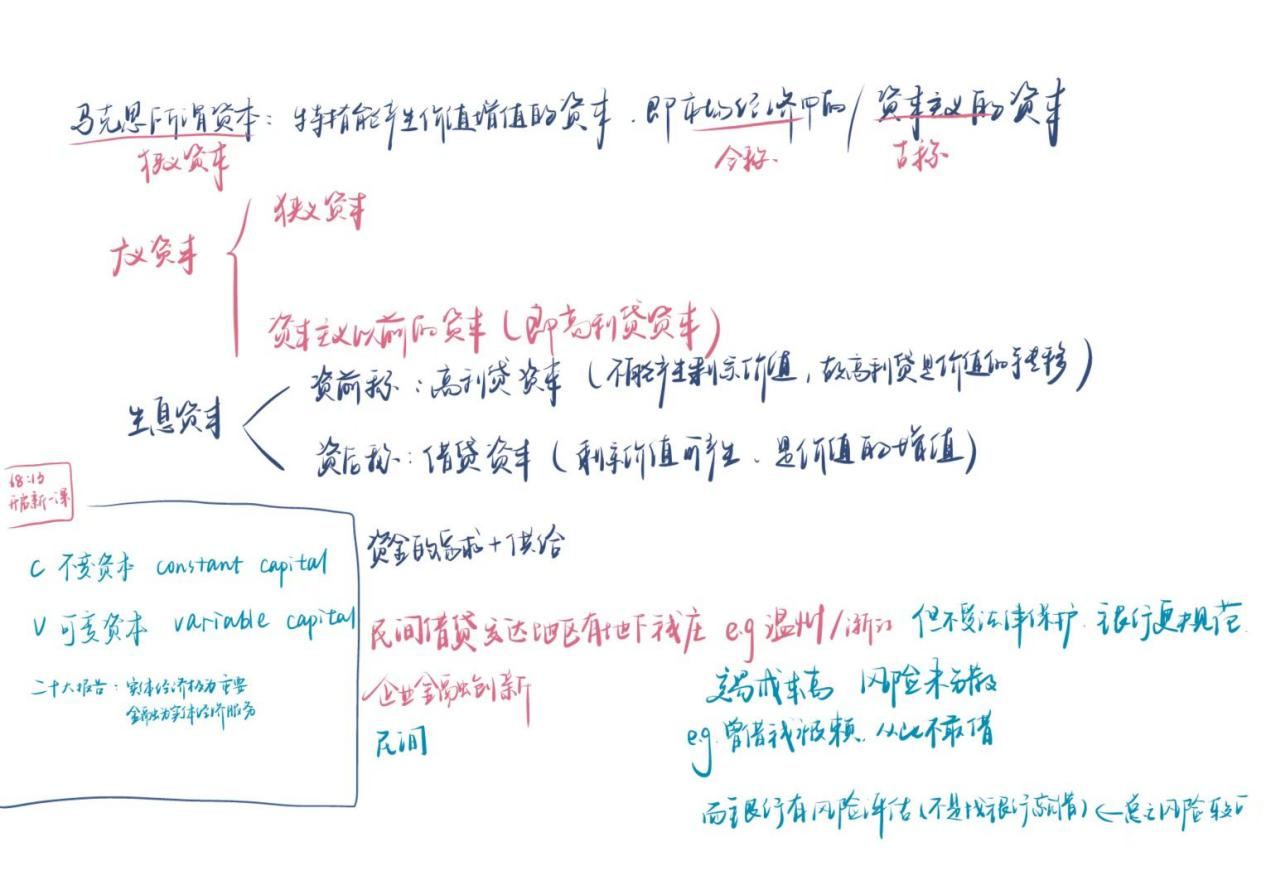 马克思所谓资本：特指能产生价值增值的资本，即市场经济中的/资本主义的资本
狭义资本 今称 古称
广义资本
狭义资本
资本主义以前的资本（即高利贷资本）
生息资本
资前称：高利贷资本（不能产生剩余价值，故高利贷是价值的转移）
资后称：借贷资本（剩余价值可产生、是价值的增值）
68:13
开启新一课
C 不变资本 constant capital
V 可变资本 variable capital
二十大报告：实体经济极为重要
金融为实体经济服务
资金的需求+供给
民间借贷发达地区有地下钱庄 e.g 温州/浙江 但不受法律保护、银行更规范
企业金融创新
民间
交易成本高 风险未分散
e.g. 曾借钱被赖，从此不敢借
而银行有风险评估（不是找银行就借）←总之风险较